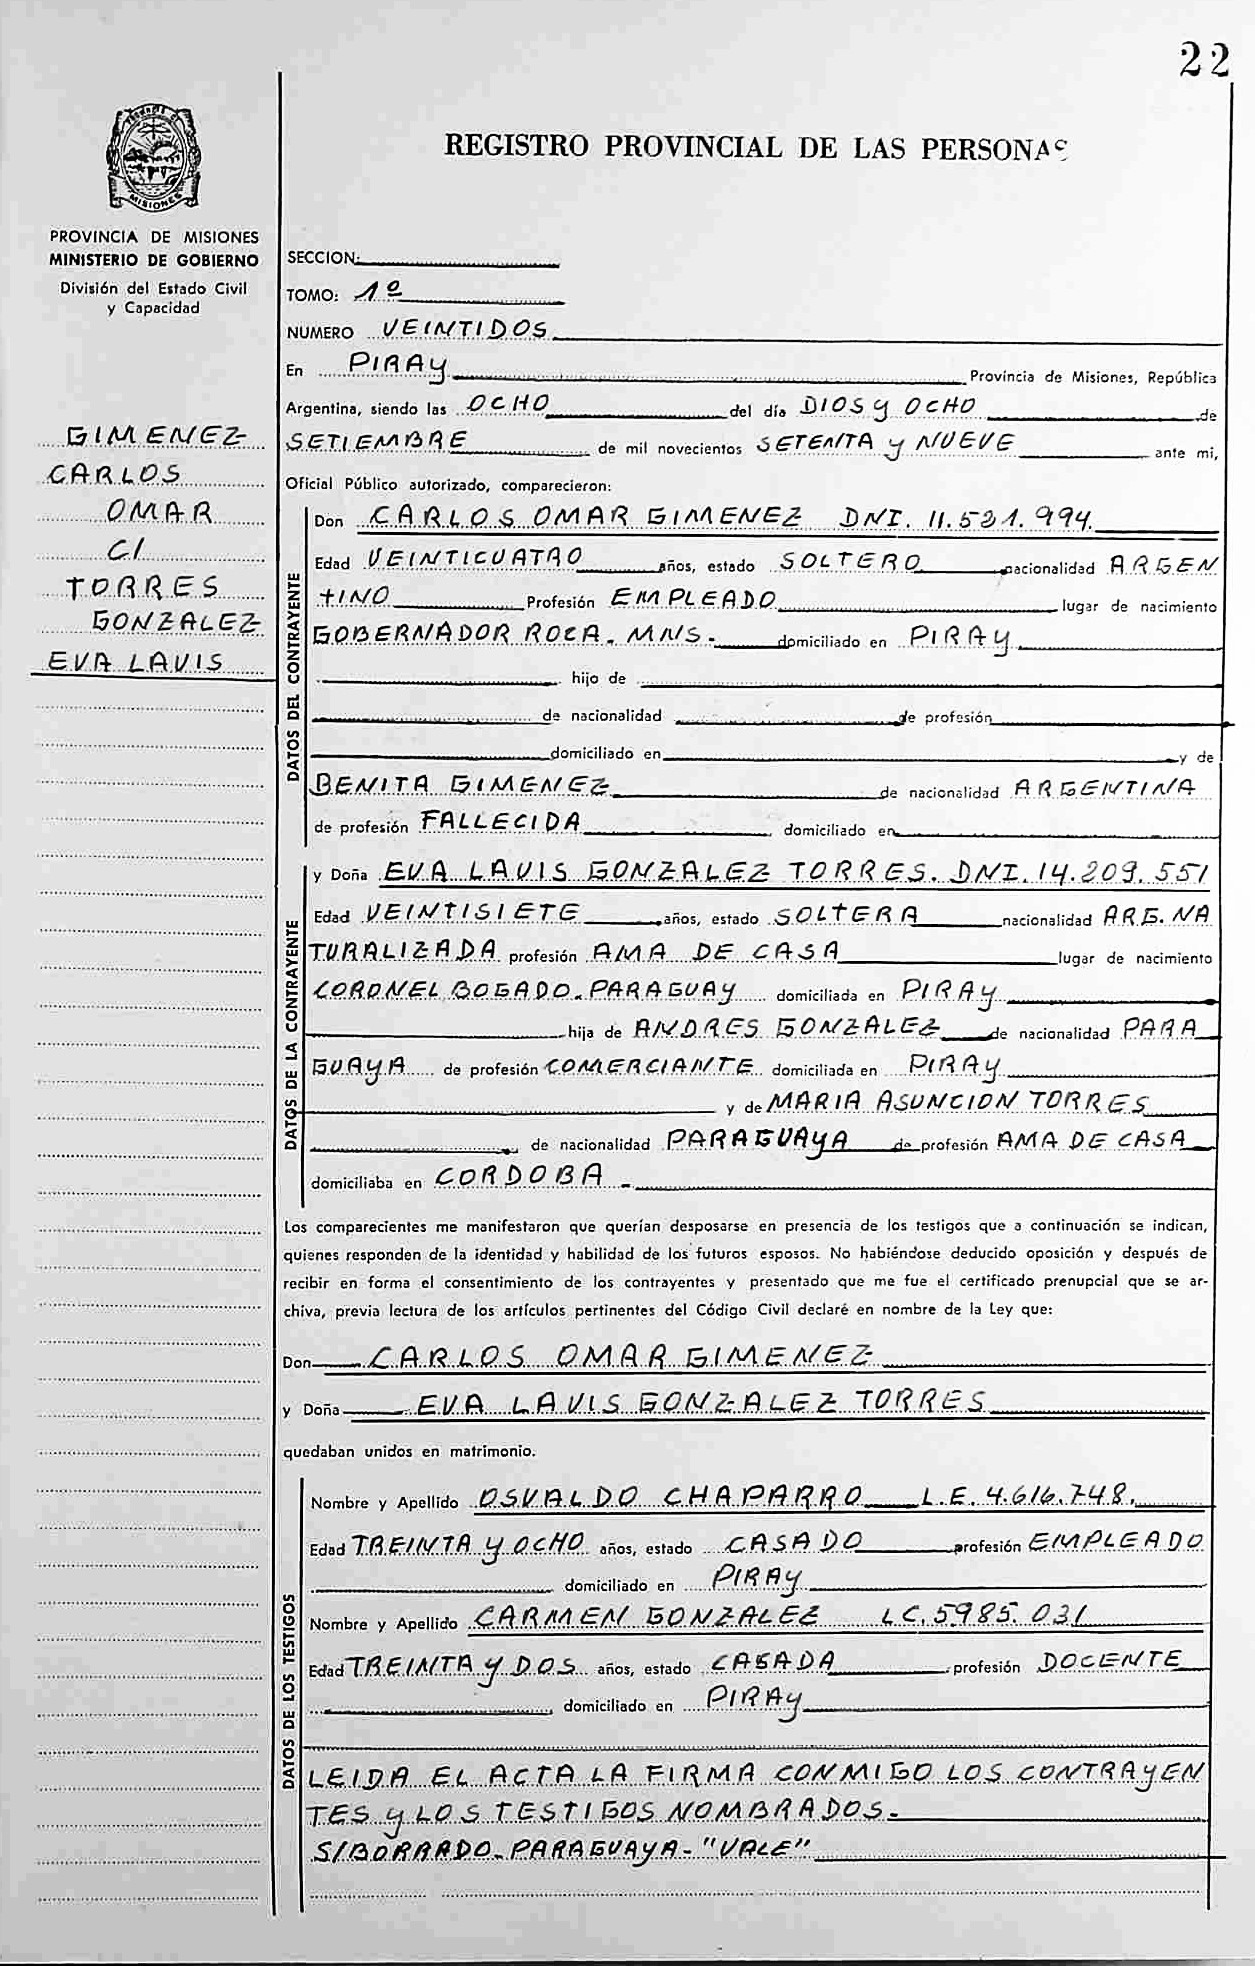 22
REGISTRO PROVINCIAL DE LAS PERSONAS
MISIONES
PROVINCIA DE MISIONES
MINISTERIO DE GOBIERNO
División del Estado Civil
y Capacidad
GIMENEZ
CARLOS
OMAR
C/
TORRES
GONZALEZ
EVA LAVIS
SECCION:
TOMO: 1º
NUMERO VEINTIDOS
En PIRAY Provincia de Misiones, República
Argentina, siendo las OCHO del día DIOS y OCHO de
SETIEMBRE de mil novecientos SETENTA y NUEVE ante mi,
Oficial Público autorizado, comparecieron:
DATOS DEL CONTRAYENTE
Don CARLOS OMAR GIMENEZ DNI. 11.521.994
Edad VEINTICUATRO años, estado SOLTERO nacionalidad ARGEN
TINO Profesión EMPLEADO lugar de nacimiento
GOBERNADOR ROCA. MNS- domiciliado en PIRAY
hijo de
de nacionalidad de profesión
domiciliado en y de
BENITA GIMENEZ de nacionalidad ARGENTINA
de profesión FALLECIDA domiciliado en
DATOS DE LA CONTRAYENTE
y Doña EVA LAVIS GONZALEZ TORRES. DNI. 14.209.551
Edad VEINTISIETE años, estado SOLTERA nacionalidad ARG. NA
TURALIZADA profesión AMA DE CASA lugar de nacimiento
CORONEL BOGADO-PARAGUAY domiciliada en PIRAY
hija de ANDRES GONZALEZ de nacionalidad PARA
GUAYA de profesión COMERCIANTE domiciliada en PIRAY
y de MARIA ASUNCION TORRES
de nacionalidad PARAGUAYA de profesión AMA DE CASA
domiciliaba en CORDOBA -
Los comparecientes me manifestaron que querían desposarse en presencia de los testigos que a continuación se indican,
quienes responden de la identidad y habilidad de los futuros esposos. No habiéndose deducido oposición y después de
recibir en forma el consentimiento de los contrayentes y presentado que me fue el certificado prenupcial que se ar-
chiva, previa lectura de los artículos pertinentes del Código Civil declaré en nombre de la Ley que:
Don CARLOS OMAR GIMENEZ
y Doña EVA LAVIS GONZALEZ TORRES
quedaban unidos en matrimonio.
DATOS DE LOS TESTIGOS
Nombre y Apellido OSVALDO CHAPARRO L.E. 4.616.748.
Edad TREINTA y OCHO años, estado CASADO profesión EMPLEADO
domiciliado en PIRAY
Nombre y Apellido CARMEN GONZALEZ LC. 5985.031
Edad TREINTA y DOS años, estado CASADA profesión DOCENTE
domiciliado en PIRAY
LEIDA EL ACTA LA FIRMA CONMIGO LOS CONTRAYEN
TES y LOS TESTIGOS NOMBRADOS-
S/BORRADO-PARAGUAYA-"VALE"